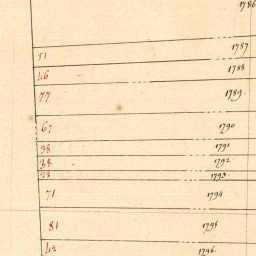 1786
51 1787
46 1788
77 1789
67 1790
38 1791
38 1792
33 1793
71 1794
81 1795
1796